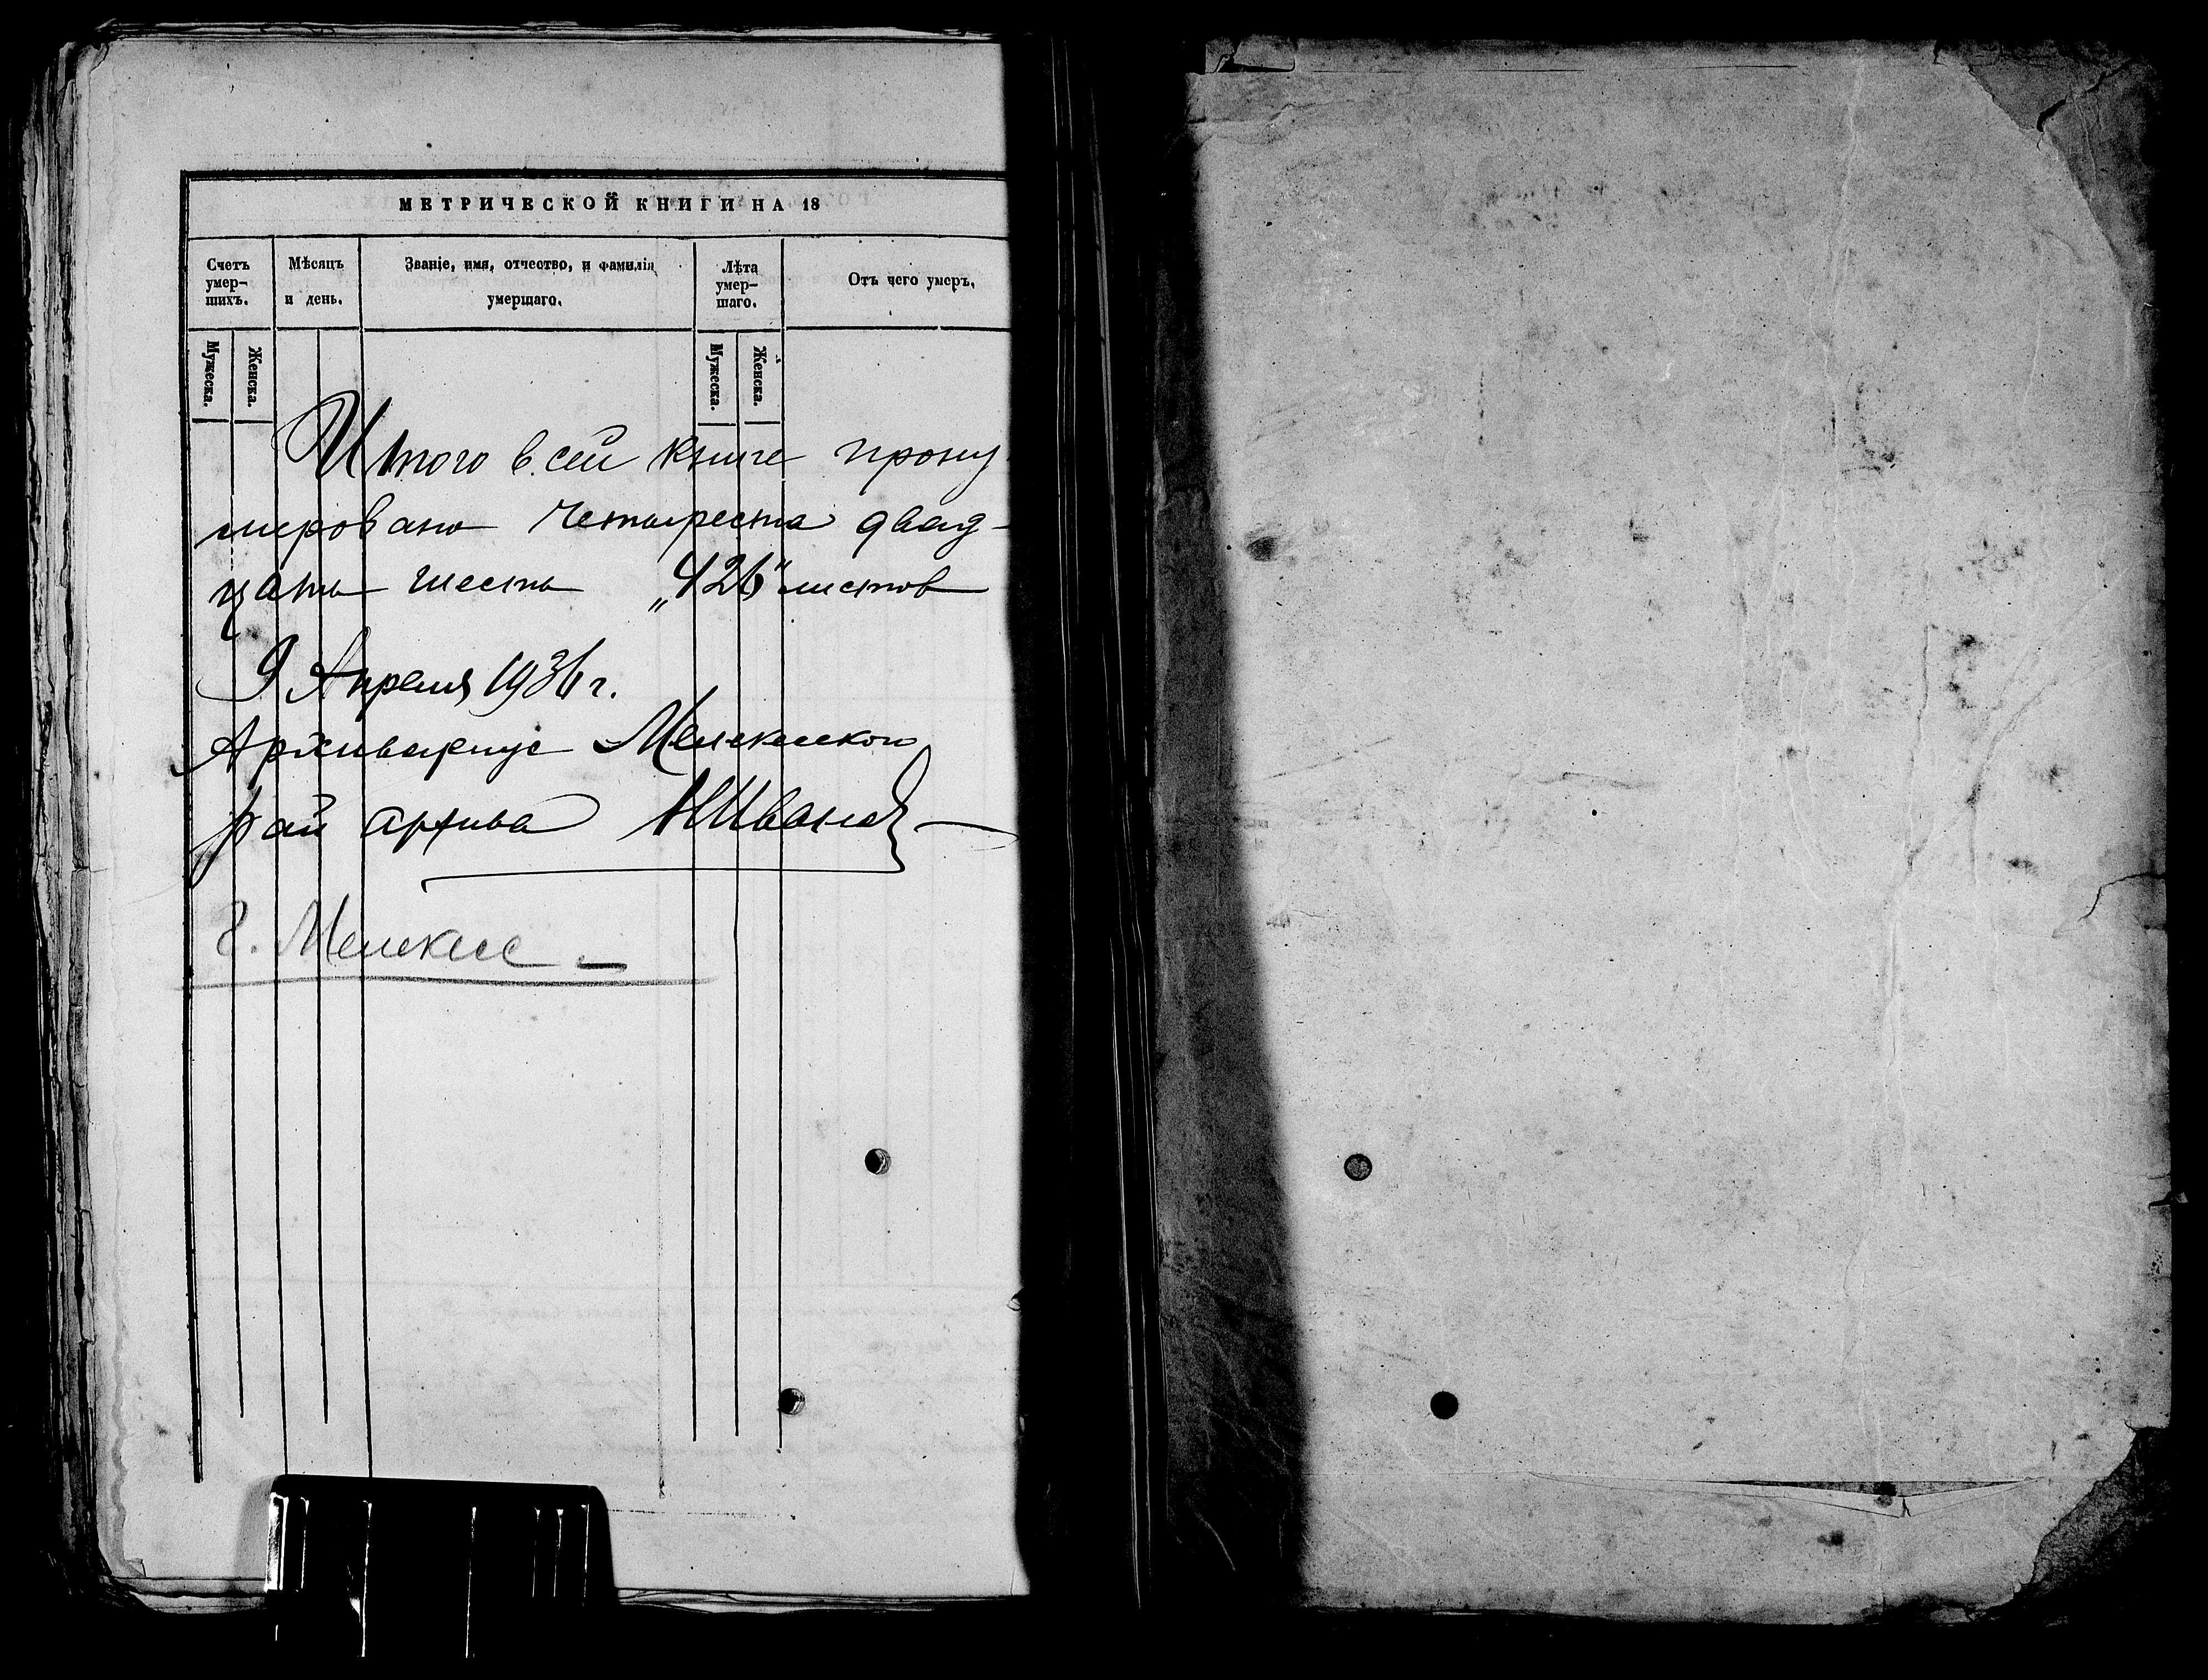 МЕТРИЧЕСКОЙ КНИГИ НА 18
Счетъ умер-
шихъ.
Мѣсяцъ
и день.
Званіе, имя, отчество, и фамилія
умершаго.
Лѣта
умер-
шаго.
Отъ чего умеръ.
Мужеска.
Женска.
Мужеска.
Женска.
Итого в сей книге прону
мировано четыреста двад-
цать шесть „426" листов
9 Апреля 1936 г.
Архивариус Мелекесского
рай архива НИванов
г. Мелекесс